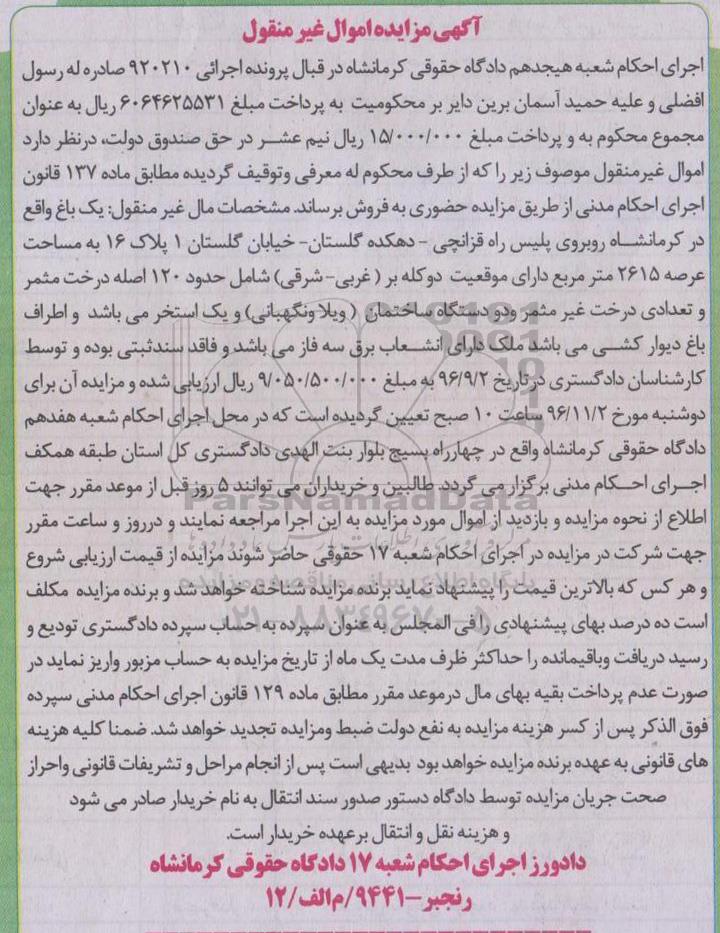 آگهی مزایده اموال غیر منقول
اجرای احکام شعبه هیجدهم دادگاه حقوقی کرمانشاه در قبال پرونده اجرائی ۹۲۰۲۱۰ صادره له رسول
افضلی و علیه حمید آسمان برین دایر بر محکومیت به پرداخت مبلغ ۶۰۶۴۶۲۵۵۳۱ ریال به عنوان
مجموع محکوم به و پرداخت مبلغ ۱۵/۰۰۰/۰۰۰ ریال نیم عشر در حق صندوق دولت، درنظر دارد
اموال غیرمنقول موصوف زیر را که از طرف محکوم له معرفی وتوقیف گردیده مطابق ماده ۱۳۷ قانون
اجرای احکام مدنی از طریق مزایده حضوری به فروش برساند. مشخصات مال غیر منقول: یک باغ واقع
در کرمانشاه روبروی پلیس راه قزانچی - دهکده گلستان- خیابان گلستان ۱ پلاک ۱۶ به مساحت
عرصه ۲۶۱۵ متر مربع دارای موقعیت دوکله بر ( غربی- شرقی) شامل حدود ۱۲۰ اصله درخت مثمر
و تعدادی درخت غیر مثمر ودو دستگاه ساختمان ( ویلا ونگهبانی) و یک استخر می باشد و اطراف
باغ دیوار کشی می باشد ملک دارای انشعاب برق سه فاز می باشد و فاقد سندثبتی بوده و توسط
کارشناسان دادگستری درتاریخ ۹۶/۹/۲ به مبلغ ۹/۰۵۰/۵۰۰/۰۰۰ ریال ارزیابی شده و مزایده آن برای
دوشنبه مورخ ۹۶/۱۱/۲ ساعت ۱۰ صبح تعیین گردیده است که در محل اجرای احکام شعبه هفدهم
دادگاه حقوقی کرمانشاه واقع در چهارراه بسیج بلوار بنت الهدی دادگستری کل استان طبقه همکف
اجرای احکام مدنی برگزار می گردد. طالبین و خریداران می توانند ۵ روز قبل از موعد مقرر جهت
ParsNamadData
اطلاع از نحوه مزایده و بازدید از اموال مورد مزایده به این اجرا مراجعه نمایند و درروز و ساعت مقرر
جهت شرکت در مزایده در اجرای احکام شعبه ۱۷ حقوقی حاضر شوند مزایده از قیمت ارزیابی شروع
پایگاه اطلاع رسانی مناقصه و مزایده
و هر کس که بالاترین قیمت را پیشنهاد نماید برنده مزایده شناخته خواهد شد و برنده مزایده مکلف
است ده درصد بهای پیشنهادی را فی المجلس به عنوان سپرده به حساب سپرده دادگستری تودیع و
رسید دریافت وباقیمانده را حداکثر ظرف مدت یک ماه از تاریخ مزایده به حساب مزبور واریز نماید در
صورت عدم پرداخت بقیه بهای مال درموعد مقرر مطابق ماده ۱۲۹ قانون اجرای احکام مدنی سپرده
فوق الذکر پس از کسر هزینه مزایده به نفع دولت ضبط ومزایده تجدید خواهد شد. ضمنا کلیه هزینه
های قانونی به عهده برنده مزایده خواهد بود بدیهی است پس از انجام مراحل و تشریفات قانونی واحراز
صحت جریان مزایده توسط دادگاه دستور صدور سند انتقال به نام خریدار صادر می شود
و هزینه نقل و انتقال برعهده خریدار است.
دادورز اجرای احکام شعبه ۱۷ دادگاه حقوقی کرمانشاه
رنجبر-۹۴۴۱/م الف/۱۲